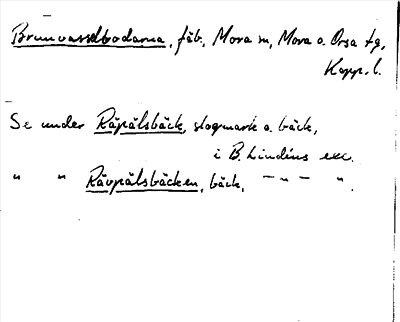 Brunvasselbodarna, fäb., Mora sn, Mora o. Orsa tg,
Kopp. l.
Se under Räpälsbäck, skogsmark o. bäck,
i B. Lindéns exc.
" " Rävpälsbäcken, bäck, — " — " .